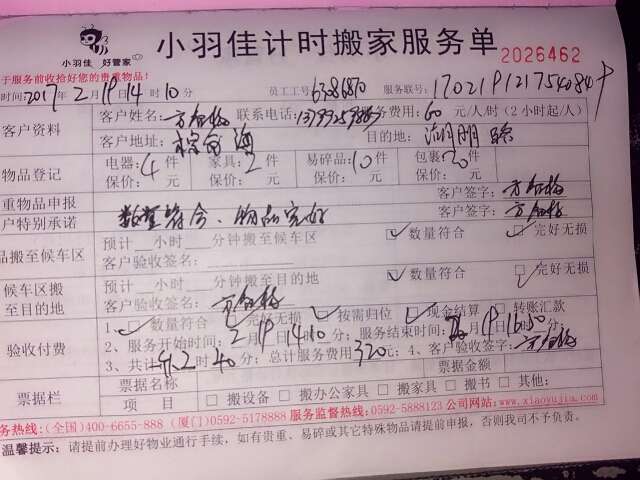 小羽佳 好管家
小羽佳计时搬家服务单
2026462
于服务前收拾好您的贵重物品！
时间:2017年2月19日14时10分 员工工号 服务联号:
客户资料
客户姓名: 联系电话: 服务费用:60元/人/时(2小时起/人)
客户地址: 目的地:
物品登记
电器:4件 家具:2件 易碎品:10件 包裹:20件
保价: 元 保价: 元 保价: 元 保价: 元
重物品申报 客户签字:
户特别承诺 数量符合、物品完好 客户签字:
品搬至候车区
预计__小时__分钟搬至候车区 ✓数量符合 ✓完好无损
客户验收签名:
候车区搬至目的地
预计__小时__分钟搬至目的地 ✓数量符合 ✓完好无损
客户验收签名:
验收付费
1、✓数量符合 ✓完好无损 ✓按需归位 ✓现金结算 转账汇款
2、服务开始时间:2月19日14时10分；服务结束时间:2月19日16时50分；
3、共计2时40分；总计服务费用320元；4、客户验收签字:
票据栏
票据名称 票据金额
项 目 □搬设备 □搬办公家具 □搬家具 □搬书 □其他:
务热线:(全国)400-6655-888 (厦门)0592-5178888 服务监督热线:0592-5888123 公司网站:www.xiaoyujia.com
温馨提示: 请提前办理好物业通行手续，如有贵重、易碎或其它特殊物品请提前申报，否则我司不予负责。